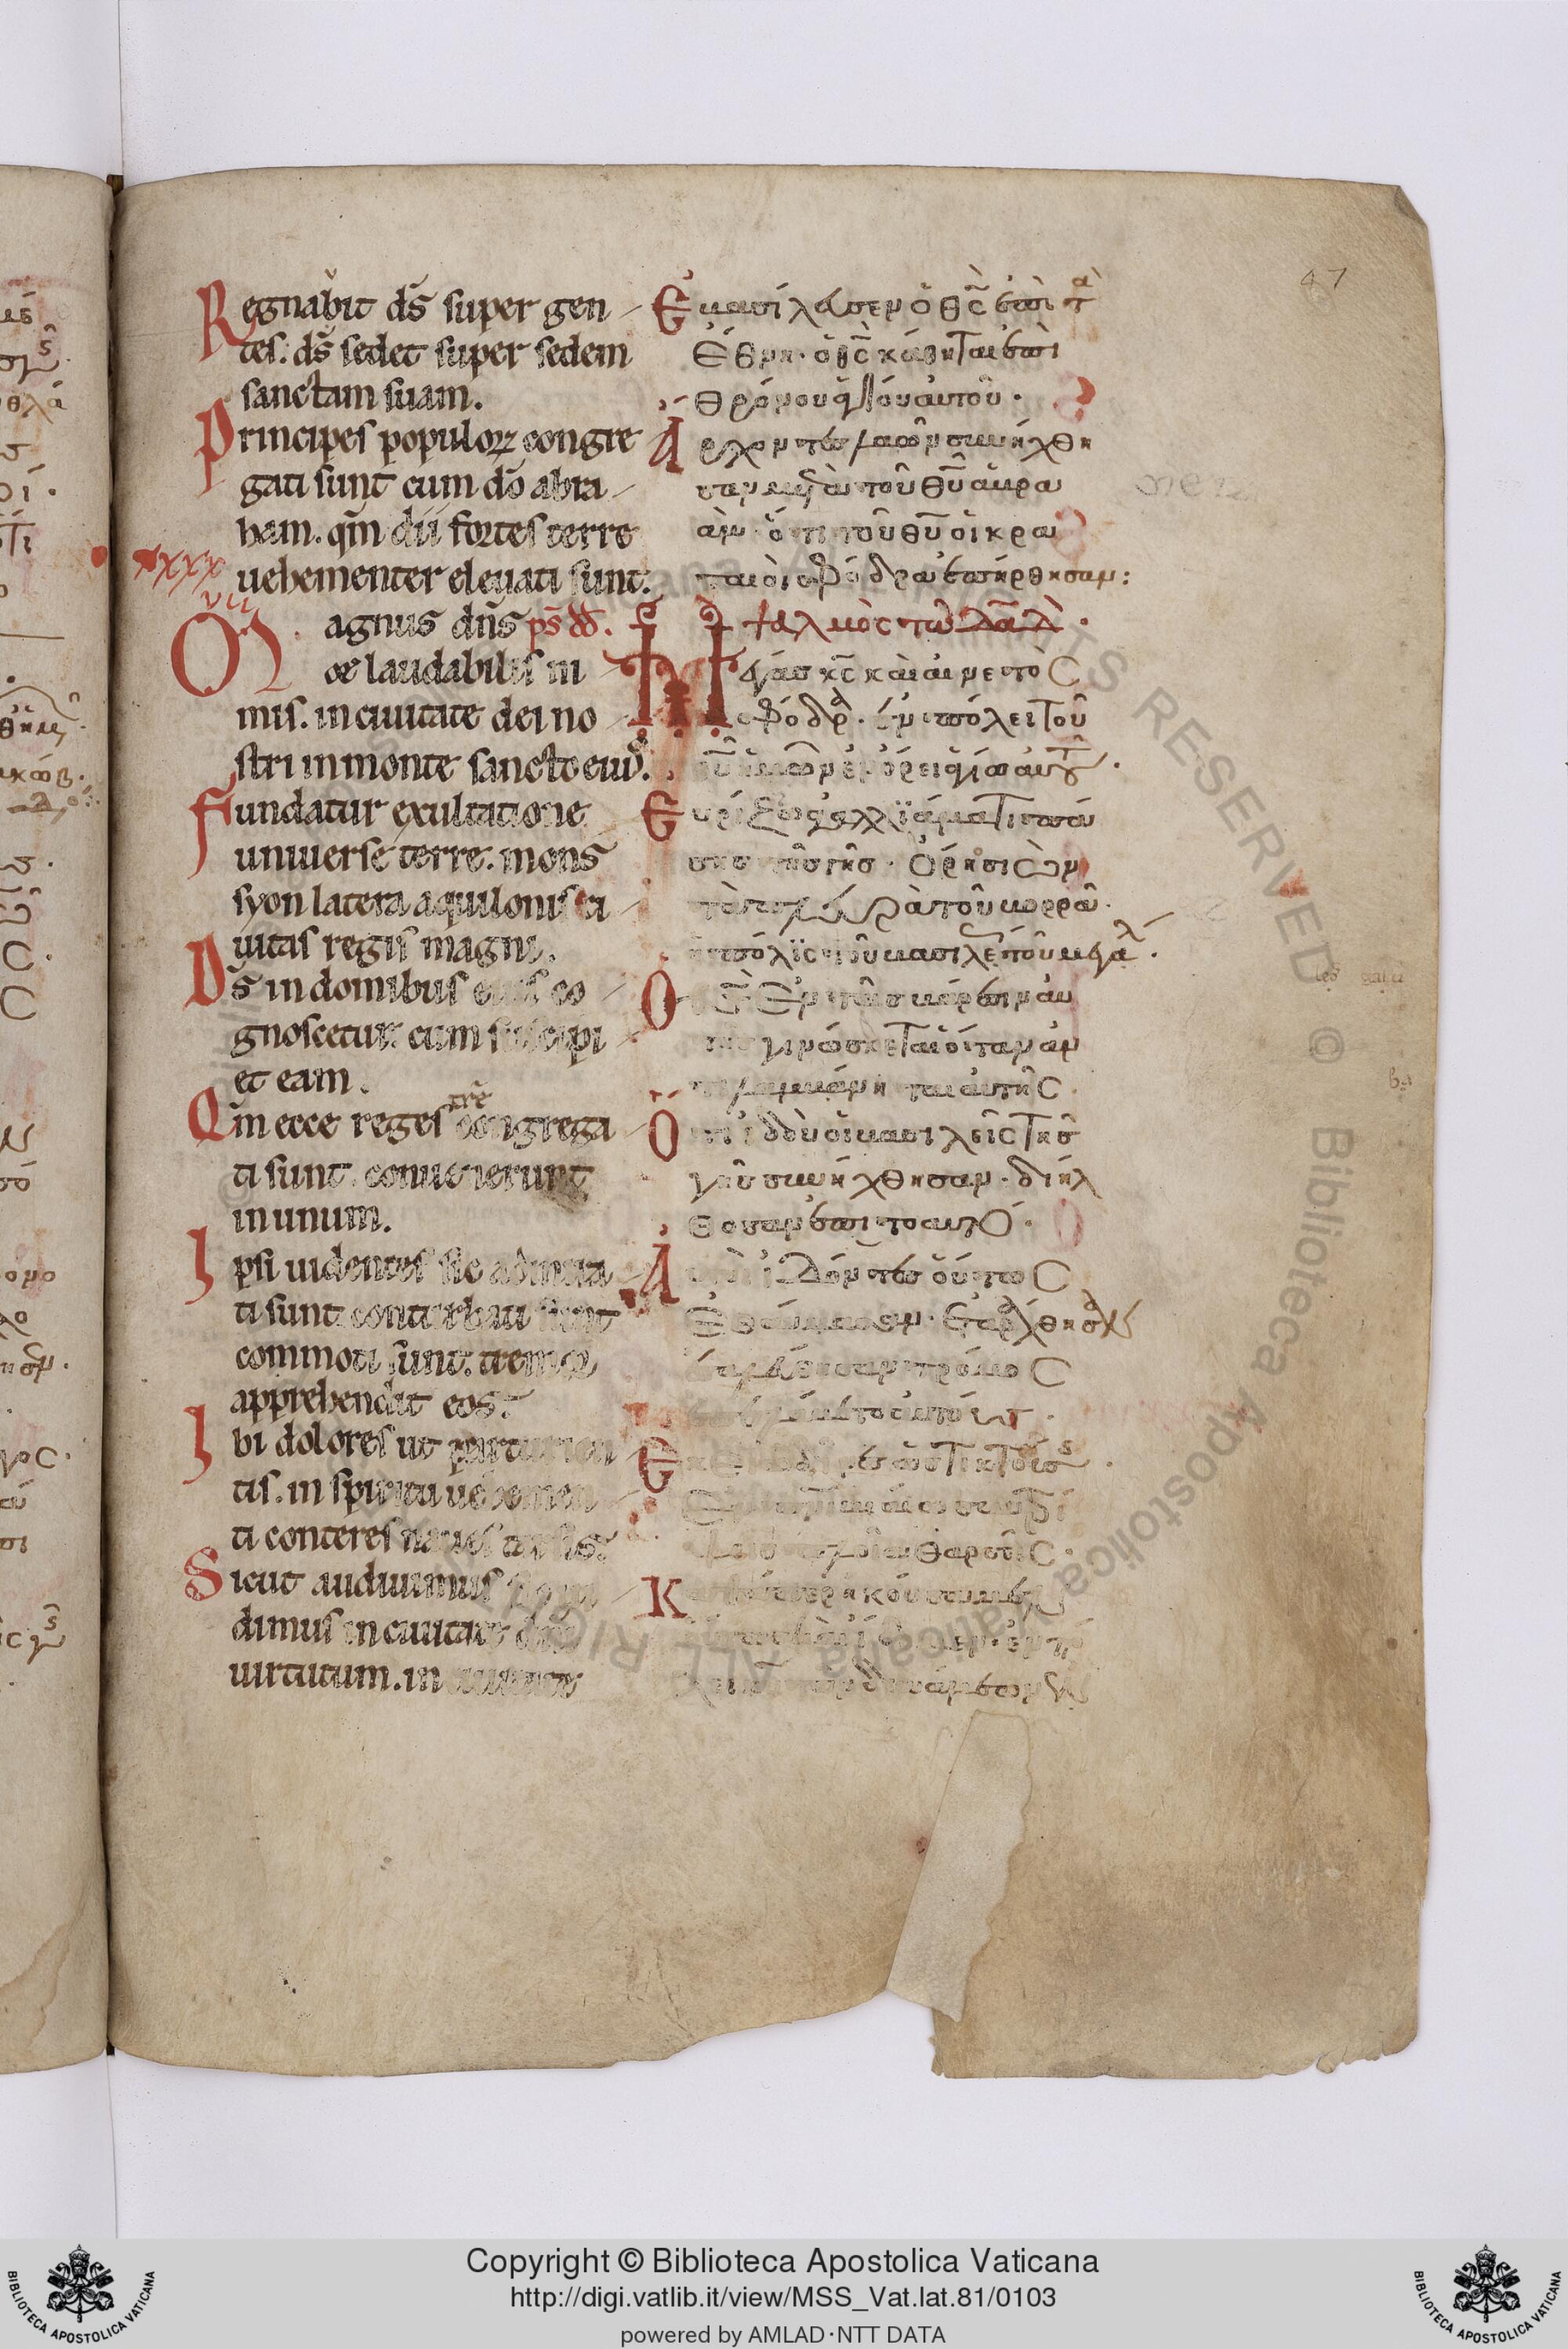 47
Regnab̆it ds̄ super gen
tes. ds̄ sedet super sedem
sanctam suam.
Principes populoꝝ congre
gati sunt cum dō abra
ham. qm̄ dii fortes terre
uehementer eleuati sunt.
xxxvii
Magnus dn̄s ps̄ dd̄.
& laudabilis ni
mis. in ciuitate dei no
stri in monte sancto eius.
Fundatur exultatione
uniuerse terre. mons
syon latera aquilonis ci
uitas regis magni.
Ds̄ in domibus eius co
gnoscetur. cum suscipi
et eam.
Qm̄ ecce reges tr̄e congrega
ti sunt. conuenerunt
in unum.
Ipsi uidentes sic admira
ti sunt conturbati sunt
commoti sunt. tremor
apprehendit eos.
Ibi dolores ut parturien
tis. in spiritu uehemen
ti conteres naues tarsis.
Sicut audiuimus
dimus in ciuitate
uirtutum. in ciuitate
Ἐβασίλευσεν ὁ θς̄ ἐπὶ τὰ
ἔθνη. ὁ θς̄ κάθηται ἐπι
θρόνου ἁγίου αὐτοῦ.
Ἄρχοντες λαῶν συνήχθη
σαν μετὰ τοῦ θῦ ἀβρα
ὰμ. ὅτι τοῦ θῦ οἱ κρα
ταιοὶ σφόδρα ἐπήρθησαν:
ψαλμὸς τῶ δᾱδ.
Μέγας κς̄ καὶ αἰνετὸς
σφόδρα. ἐν πόλει τοῦ
θῦ ἡμῶν ἐν ὄρει ἁγίω αὐτοῦ.
Εὐρίζω ἀγαλλϊάματι πάσ
ης τῆς γῆς. ὄρη σιὼν
τὰ πλευρὰ τοῦ βορρᾶ.
ἡ πόλϊς τοῦ βασιλέ τοῦ μεγάλ.
Ὁ θς̄ ἐν ταῖς βάρεσιν αὐ
της γινώσκεται ὅταν ἀν
τιλαμβάνηται αὐτῆς.
Ὅτι ἰδοὺ οἱ βασιλεῖς τῆς
γῆς συνήχθησαν. διήλ
θοσαν ἐπι τοαυτό.
Αὐτοὶ ἰδόντες οὕτως
ἐθαύμασαν. ἐταράχθησαν
ἐσαλεύθησαν τρόμος
ἐπελάβετο αὐτῶν.
Ἐκεῖ ὠδῖνες ὡς τικτούσης.
Copyright © Biblioteca Apostolica Vaticana
http://digi.vatlib.it/view/MSS_Vat.lat.81/0103
powered by AMLAD·NTT DATA